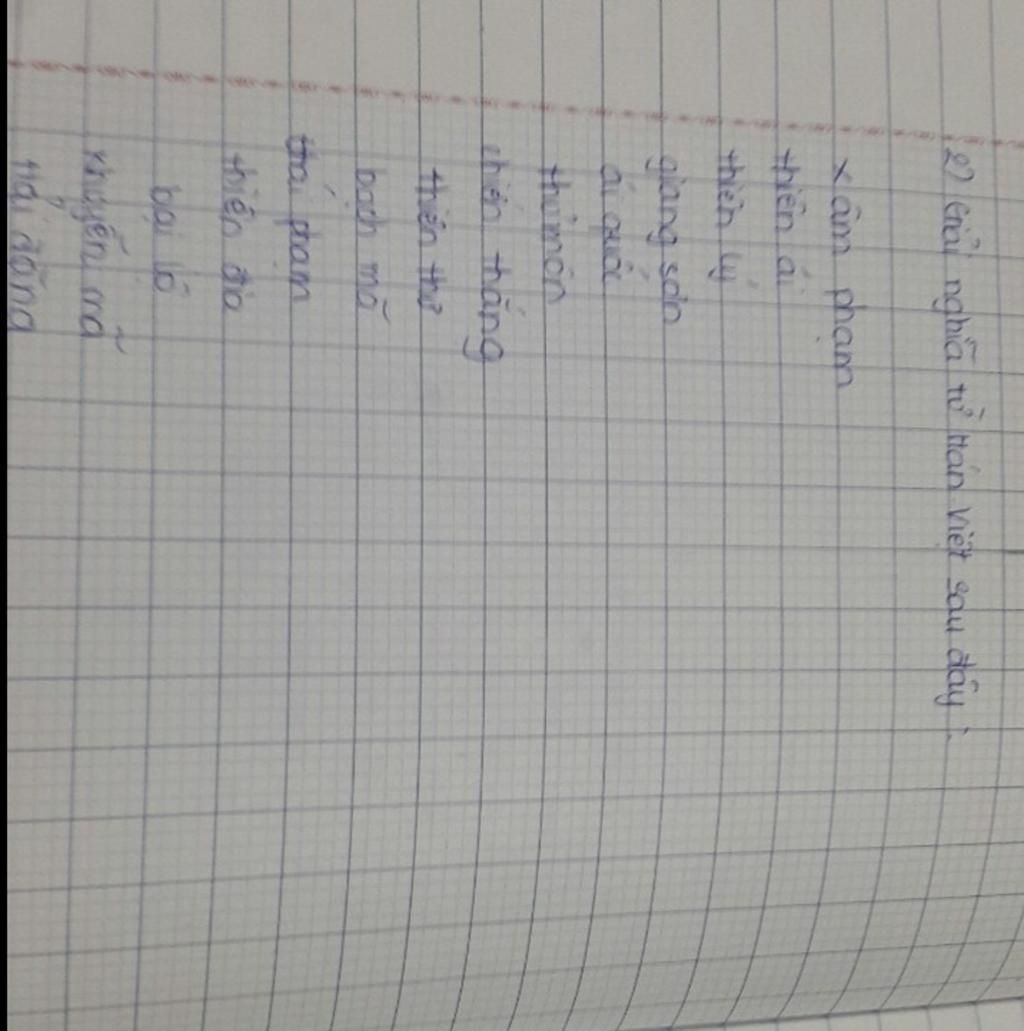 2) Giải nghĩa từ Hán Việt sau đây:
xâm phạm
thiên ái
thiên lý
giang sơn
ái quốc
thủ môn
chiến thắng
thiên thư
bạch mã
phạm
thiên địa
bại lộ
khuyển mã